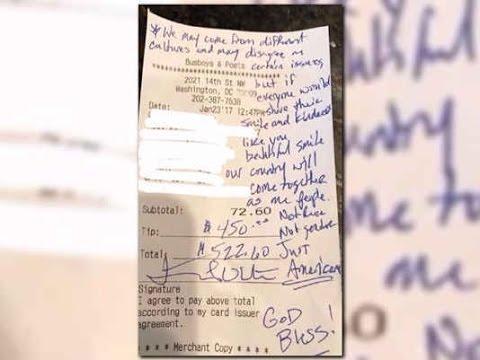 * We may come from different
cultures and may disagree on
certain issues
Busboys & Poets
2021 14th St NW
Washington, DC
202-387-7638
Date: Jan23'17 12:47PM
but if
everyone would
share their
smile and kindness
like you
beautiful smile
our country will
come together
as one people.
Not Race
Not gender
Just
American
Subtotal: 72.60
Tip: $450.00
Total: $522.60
Signature
I agree to pay above total
according to my card issuer
agreement.
GOD
Bless!
* * * * Merchant Copy * * * *